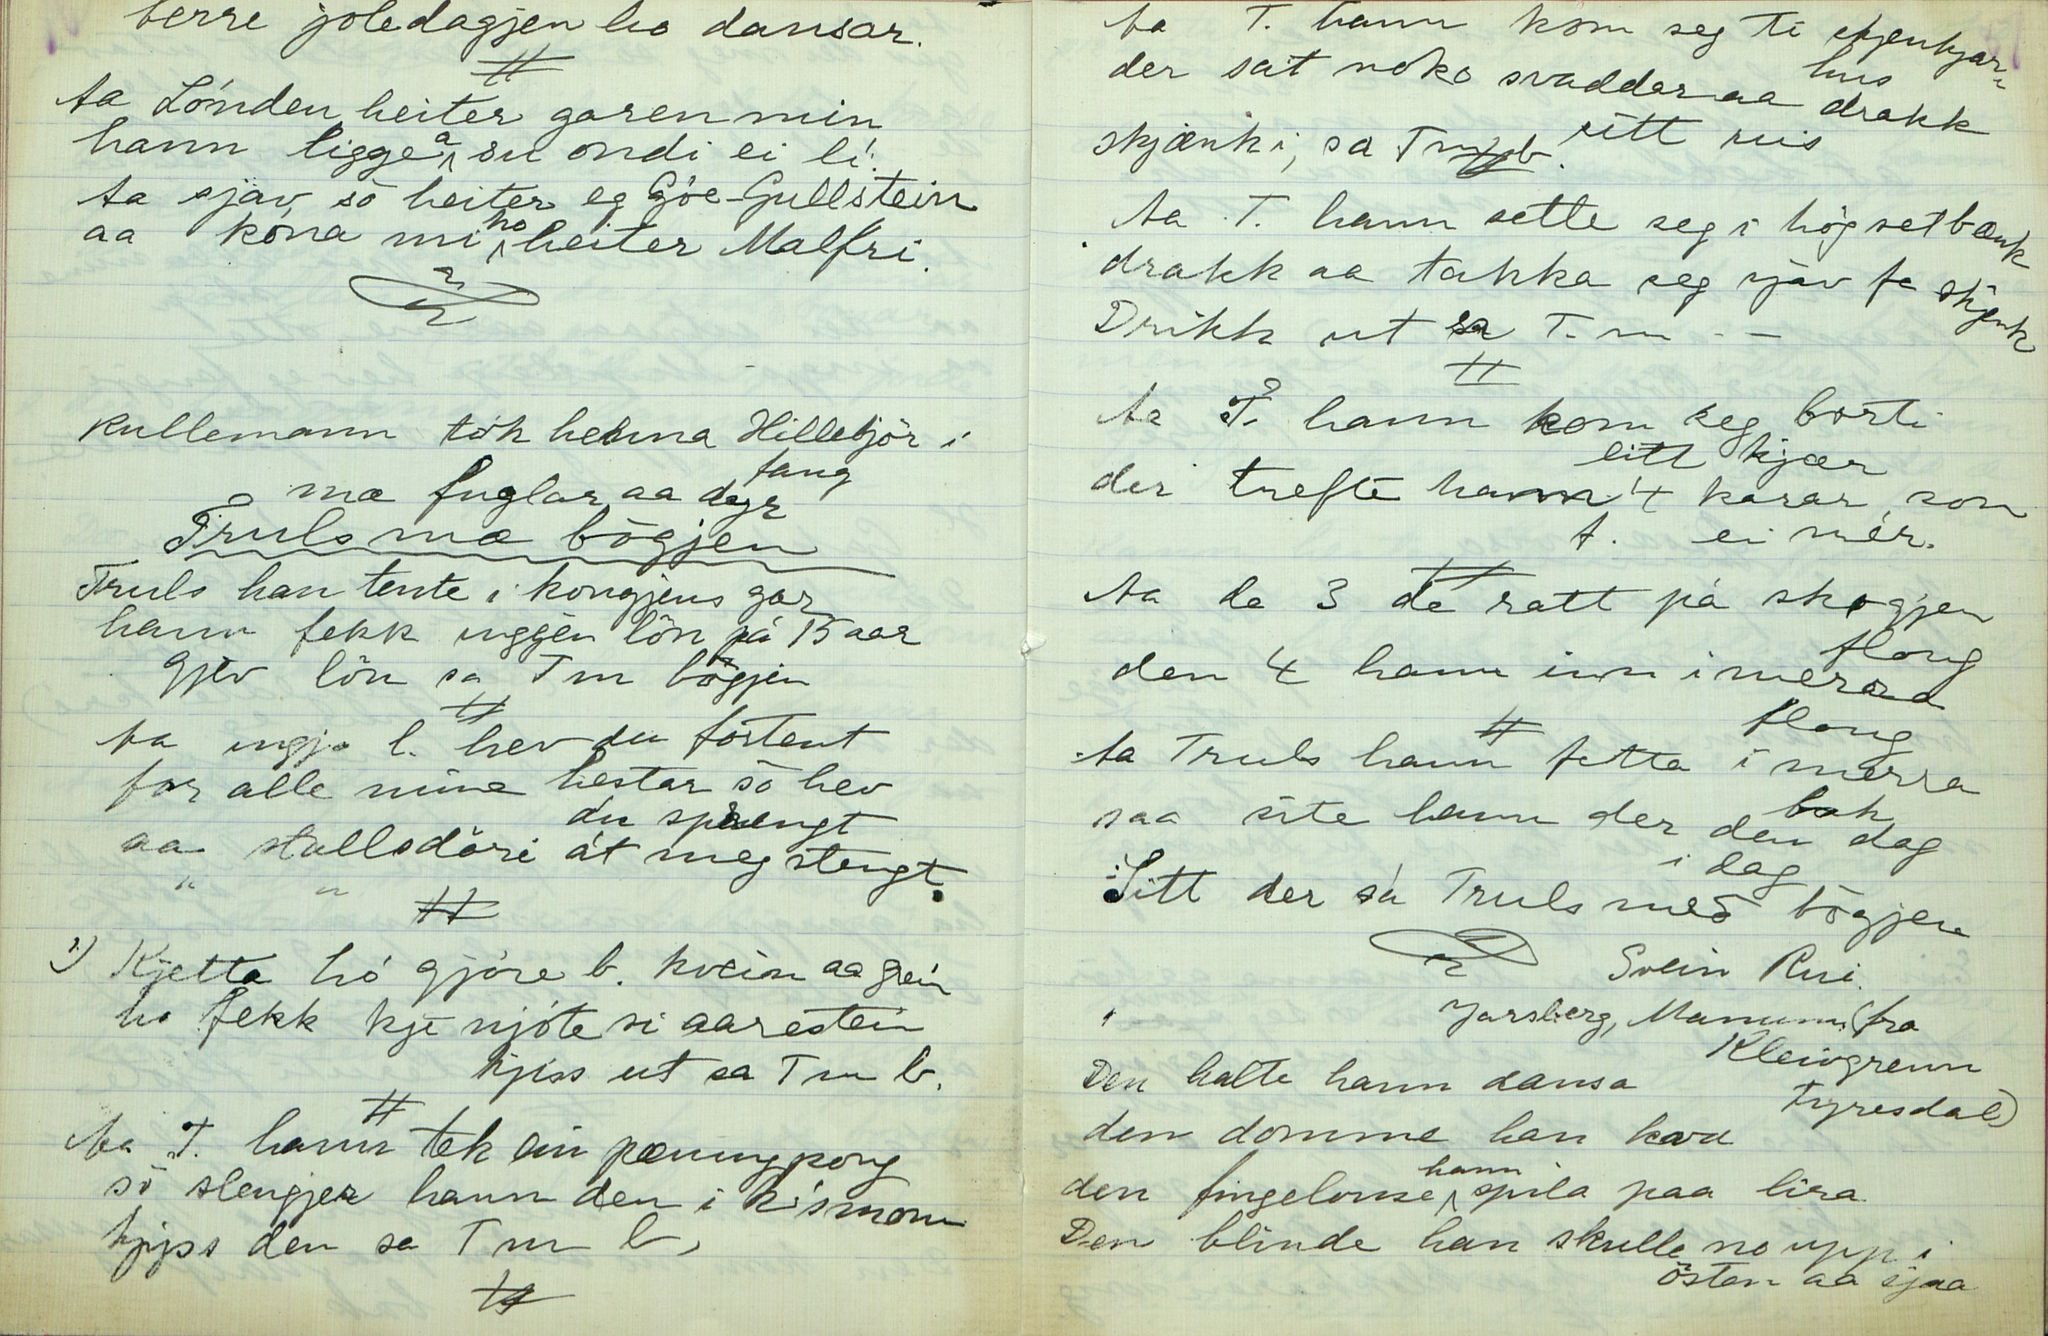 berre joledagjen ho dansar.
#
Aa Lónden heiter garen min
hann liggea su ondi ei li.
Aa sjav, sò heiter eg Góe-Gullstein
aa kona mi ho heiter Malfri.

Kullemann tók henna Hillebjör i
fang
mæ fuglar aa dyr
Truls mæ bögjen
Truls han tente i kongjens gar
hann fekk inggjen lön på 15 aar
Gjev lön sa T m bögjen
#
Aa ingje l. hev du fortent
for alle mine hestar sò hev
du sprengt
aa stallsdöri åt meg stengt.
" "
#
Kjetta hó gjöre b. kvein aa grein
ho fekk kje njóte si aarestein
kjiss ut sa T m b.
#
Aa T. hann tek ein pæningpong
sò slengjer hann den i k's monn
kjyss den sa T m b,
#
Aa T. hann kom seg ti
hus
der sat noko svaddar aa drakk
skjænk i, sa T m b. sitt ruis
Aa T. hann sette seg i högsetbænk
drakk aa takka seg sjav fe skjenk
Drikk ut sa T. m - -
#
Aa T. hann kom seg borti
eitt kjær
der trefte hann 4 karar, som
t. ei mér.
#
Aa de 3 dé ratt på skogjen
flong
den 4 hann inn i merra
flong
#
Aa Truls hann fetta i merra
bak
saa site hann der den dag
i dag
Sitt der sa Truls med bögjen
Svein Rui.
Jarsberg, Manum (fra
Kleivgrenn
Fyresdal)
Den halte hann dansa
den domme han kvad
den fingelouse hann spila paa lira
Den blinde han skulle no upp i
östen aa sjaa